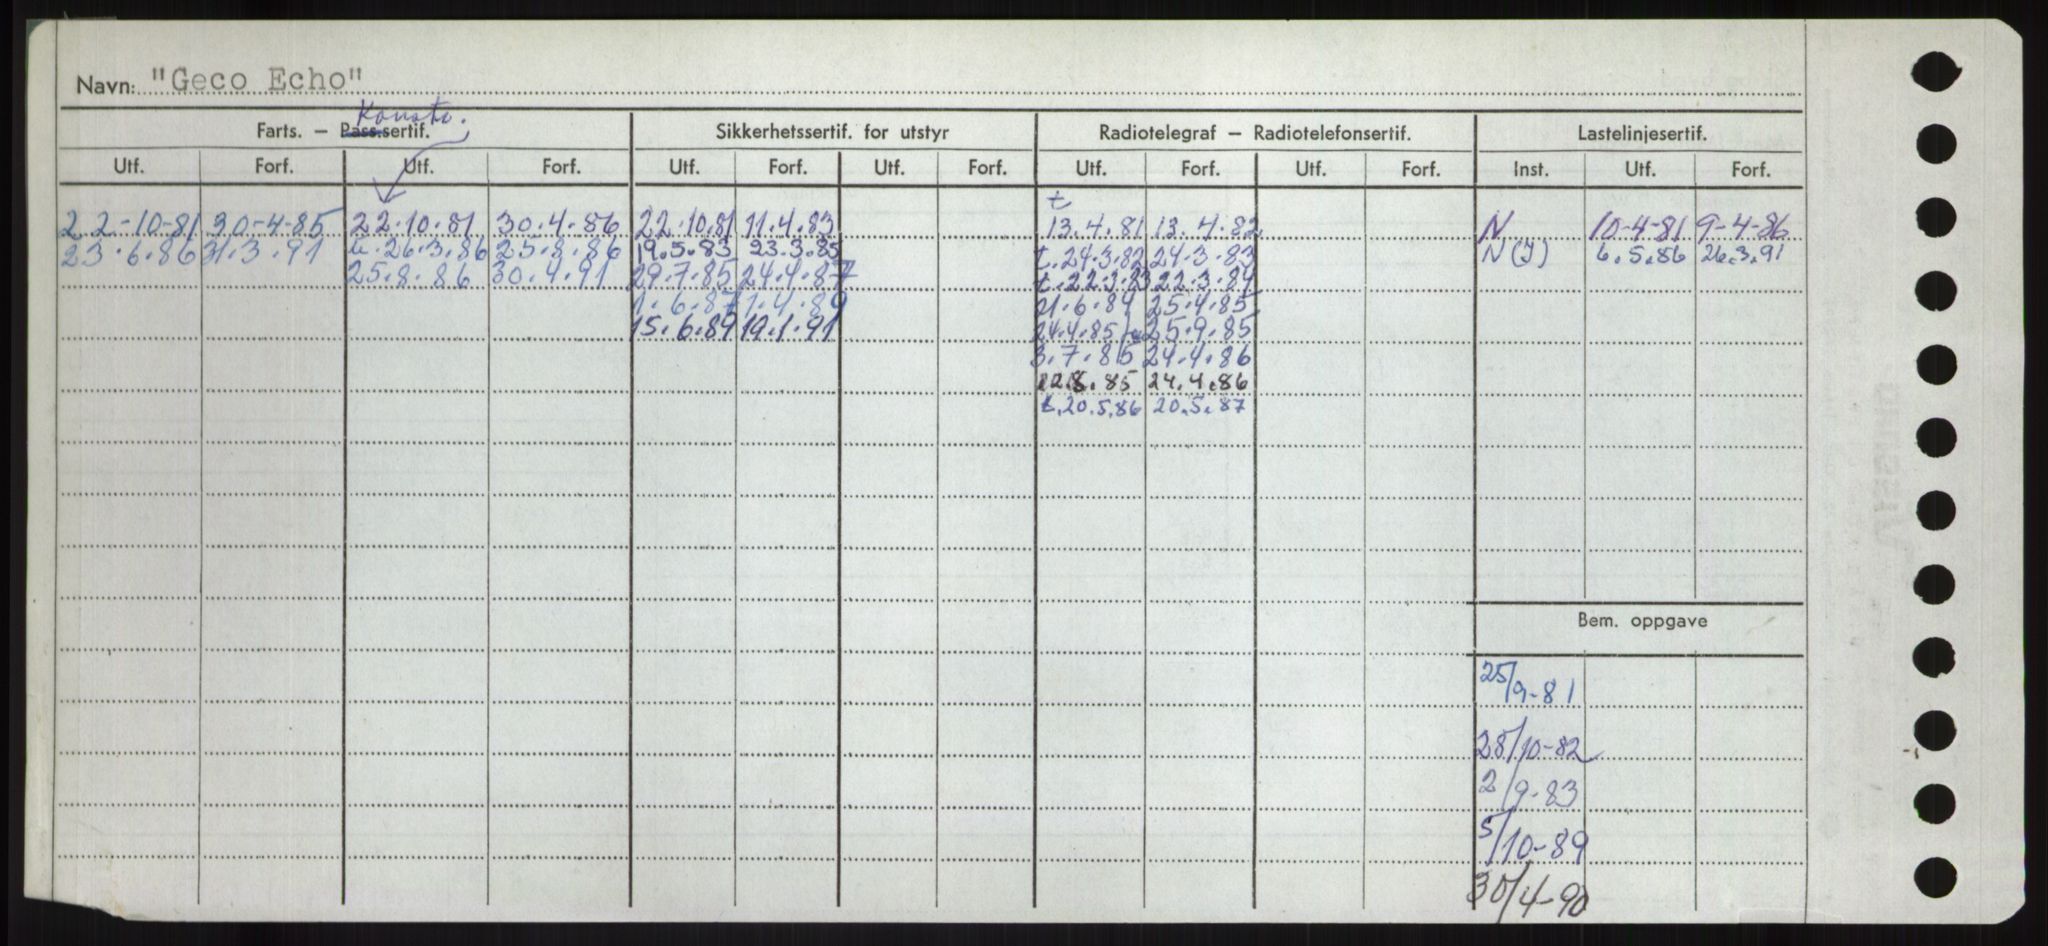 Navn: "Geco Echo"
Konstr.
Farts. – Pass.sertif. Sikkerhetssertif. for utstyr Radiotelegraf – Radiotelefonsertif. Lastelinjesertif.
Utf. Forf. Utf. Forf. Utf. Forf. Utf. Forf. Utf. Forf. Utf. Forf. Inst. Utf. Forf.
t
22-10-81 30-4-85 22.10.81 30.4.86 22.10.81 11.4.83 13.4.81 13.4.82 N 10-4-81 9-4-86
23.6.86 31.3.91 u.26.3.86 25.8.86 19.5.83 23.3.85 t.24.3.82 24.3.83 N(I) 6.5.86 26.3.91
25.8.86 30.4.91 29.7.85 24.4.87 t.22.3.83 22.3.84
1.6.87 1.4.89 21.6.84 25.4.85
15.6.89 19.1.91 24.4.85 25.9.85
3.7.85 24.4.86
12.8.85 24.4.86
t.20.5.86 20.5.87
Bem. oppgave
25/9-81
28/10-82
2/9-83
5/10-89
30/4-90